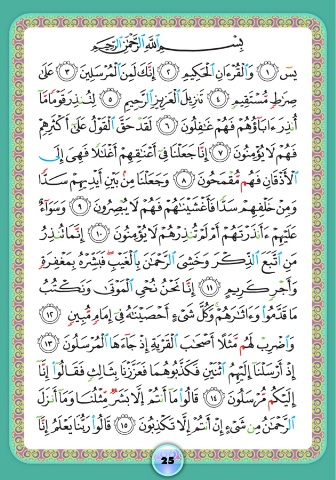 بِسْمِ اللَّهِ الرَّحْمَٰنِ الرَّحِيمِ
يسٓ ١ وَالْقُرْءَانِ الْحَكِيمِ ٢ إِنَّكَ لَمِنَ الْمُرْسَلِينَ ٣ عَلَىٰ
صِرَٰطٍ مُّسْتَقِيمٍ ٤ تَنزِيلَ الْعَزِيزِ الرَّحِيمِ ٥ لِتُنذِرَ قَوْمًا مَّا
أُنذِرَ ءَابَاؤُهُمْ فَهُمْ غَٰفِلُونَ ٦ لَقَدْ حَقَّ الْقَوْلُ عَلَىٰ أَكْثَرِهِمْ
فَهُمْ لَا يُؤْمِنُونَ ٧ إِنَّا جَعَلْنَا فِي أَعْنَٰقِهِمْ أَغْلَٰلًا فَهِيَ إِلَى
الْأَذْقَانِ فَهُم مُّقْمَحُونَ ٨ وَجَعَلْنَا مِنۢ بَيْنِ أَيْدِيهِمْ سَدًّا
وَمِنْ خَلْفِهِمْ سَدًّا فَأَغْشَيْنَٰهُمْ فَهُمْ لَا يُبْصِرُونَ ٩ وَسَوَآءٌ
عَلَيْهِمْ ءَأَنذَرْتَهُمْ أَمْ لَمْ تُنذِرْهُمْ لَا يُؤْمِنُونَ ١٠ إِنَّمَا تُنذِرُ
مَنِ اتَّبَعَ الذِّكْرَ وَخَشِيَ الرَّحْمَٰنَ بِالْغَيْبِ فَبَشِّرْهُ بِمَغْفِرَةٍ
وَأَجْرٍ كَرِيمٍ ١١ إِنَّا نَحْنُ نُحْيِ الْمَوْتَىٰ وَنَكْتُبُ
مَا قَدَّمُوا وَءَاثَٰرَهُمْ وَكُلَّ شَيْءٍ أَحْصَيْنَٰهُ فِي إِمَامٍ مُّبِينٍ ١٢
وَاضْرِبْ لَهُم مَّثَلًا أَصْحَٰبَ الْقَرْيَةِ إِذْ جَآءَهَا الْمُرْسَلُونَ ١٣
إِذْ أَرْسَلْنَا إِلَيْهِمُ اثْنَيْنِ فَكَذَّبُوهُمَا فَعَزَّزْنَا بِثَالِثٍ فَقَالُوا إِنَّا
إِلَيْكُم مُّرْسَلُونَ ١٤ قَالُوا مَا أَنتُمْ إِلَّا بَشَرٌ مِّثْلُنَا وَمَا أَنزَلَ
الرَّحْمَٰنُ مِن شَيْءٍ إِنْ أَنتُمْ إِلَّا تَكْذِبُونَ ١٥ قَالُوا رَبُّنَا يَعْلَمُ إِنَّا
25